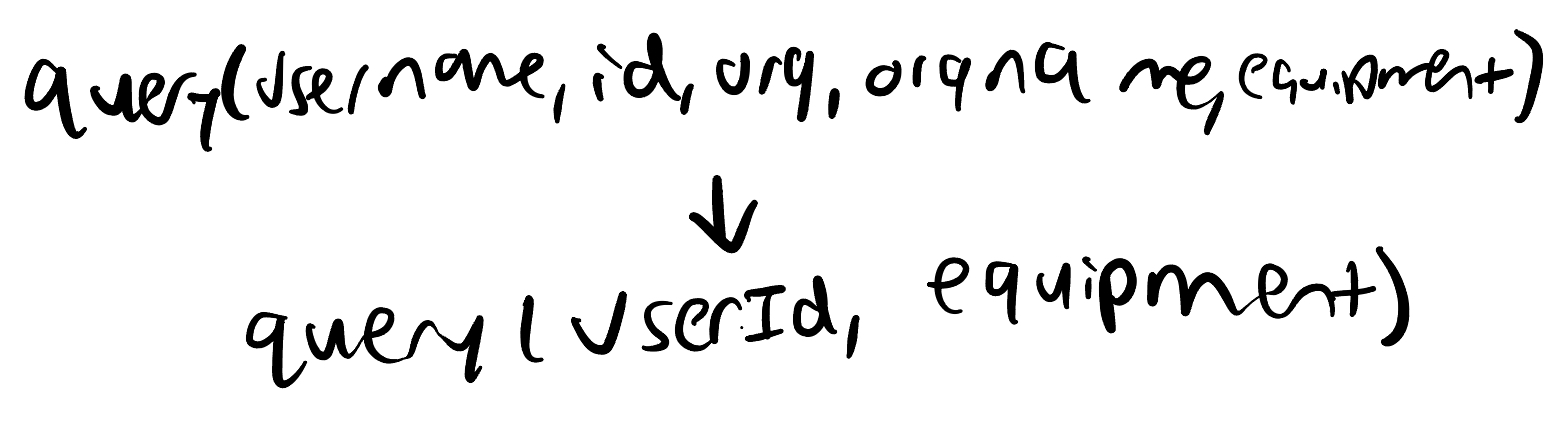 query(username, id, org, orgname, equipment)
↓
query(userId, equipment)